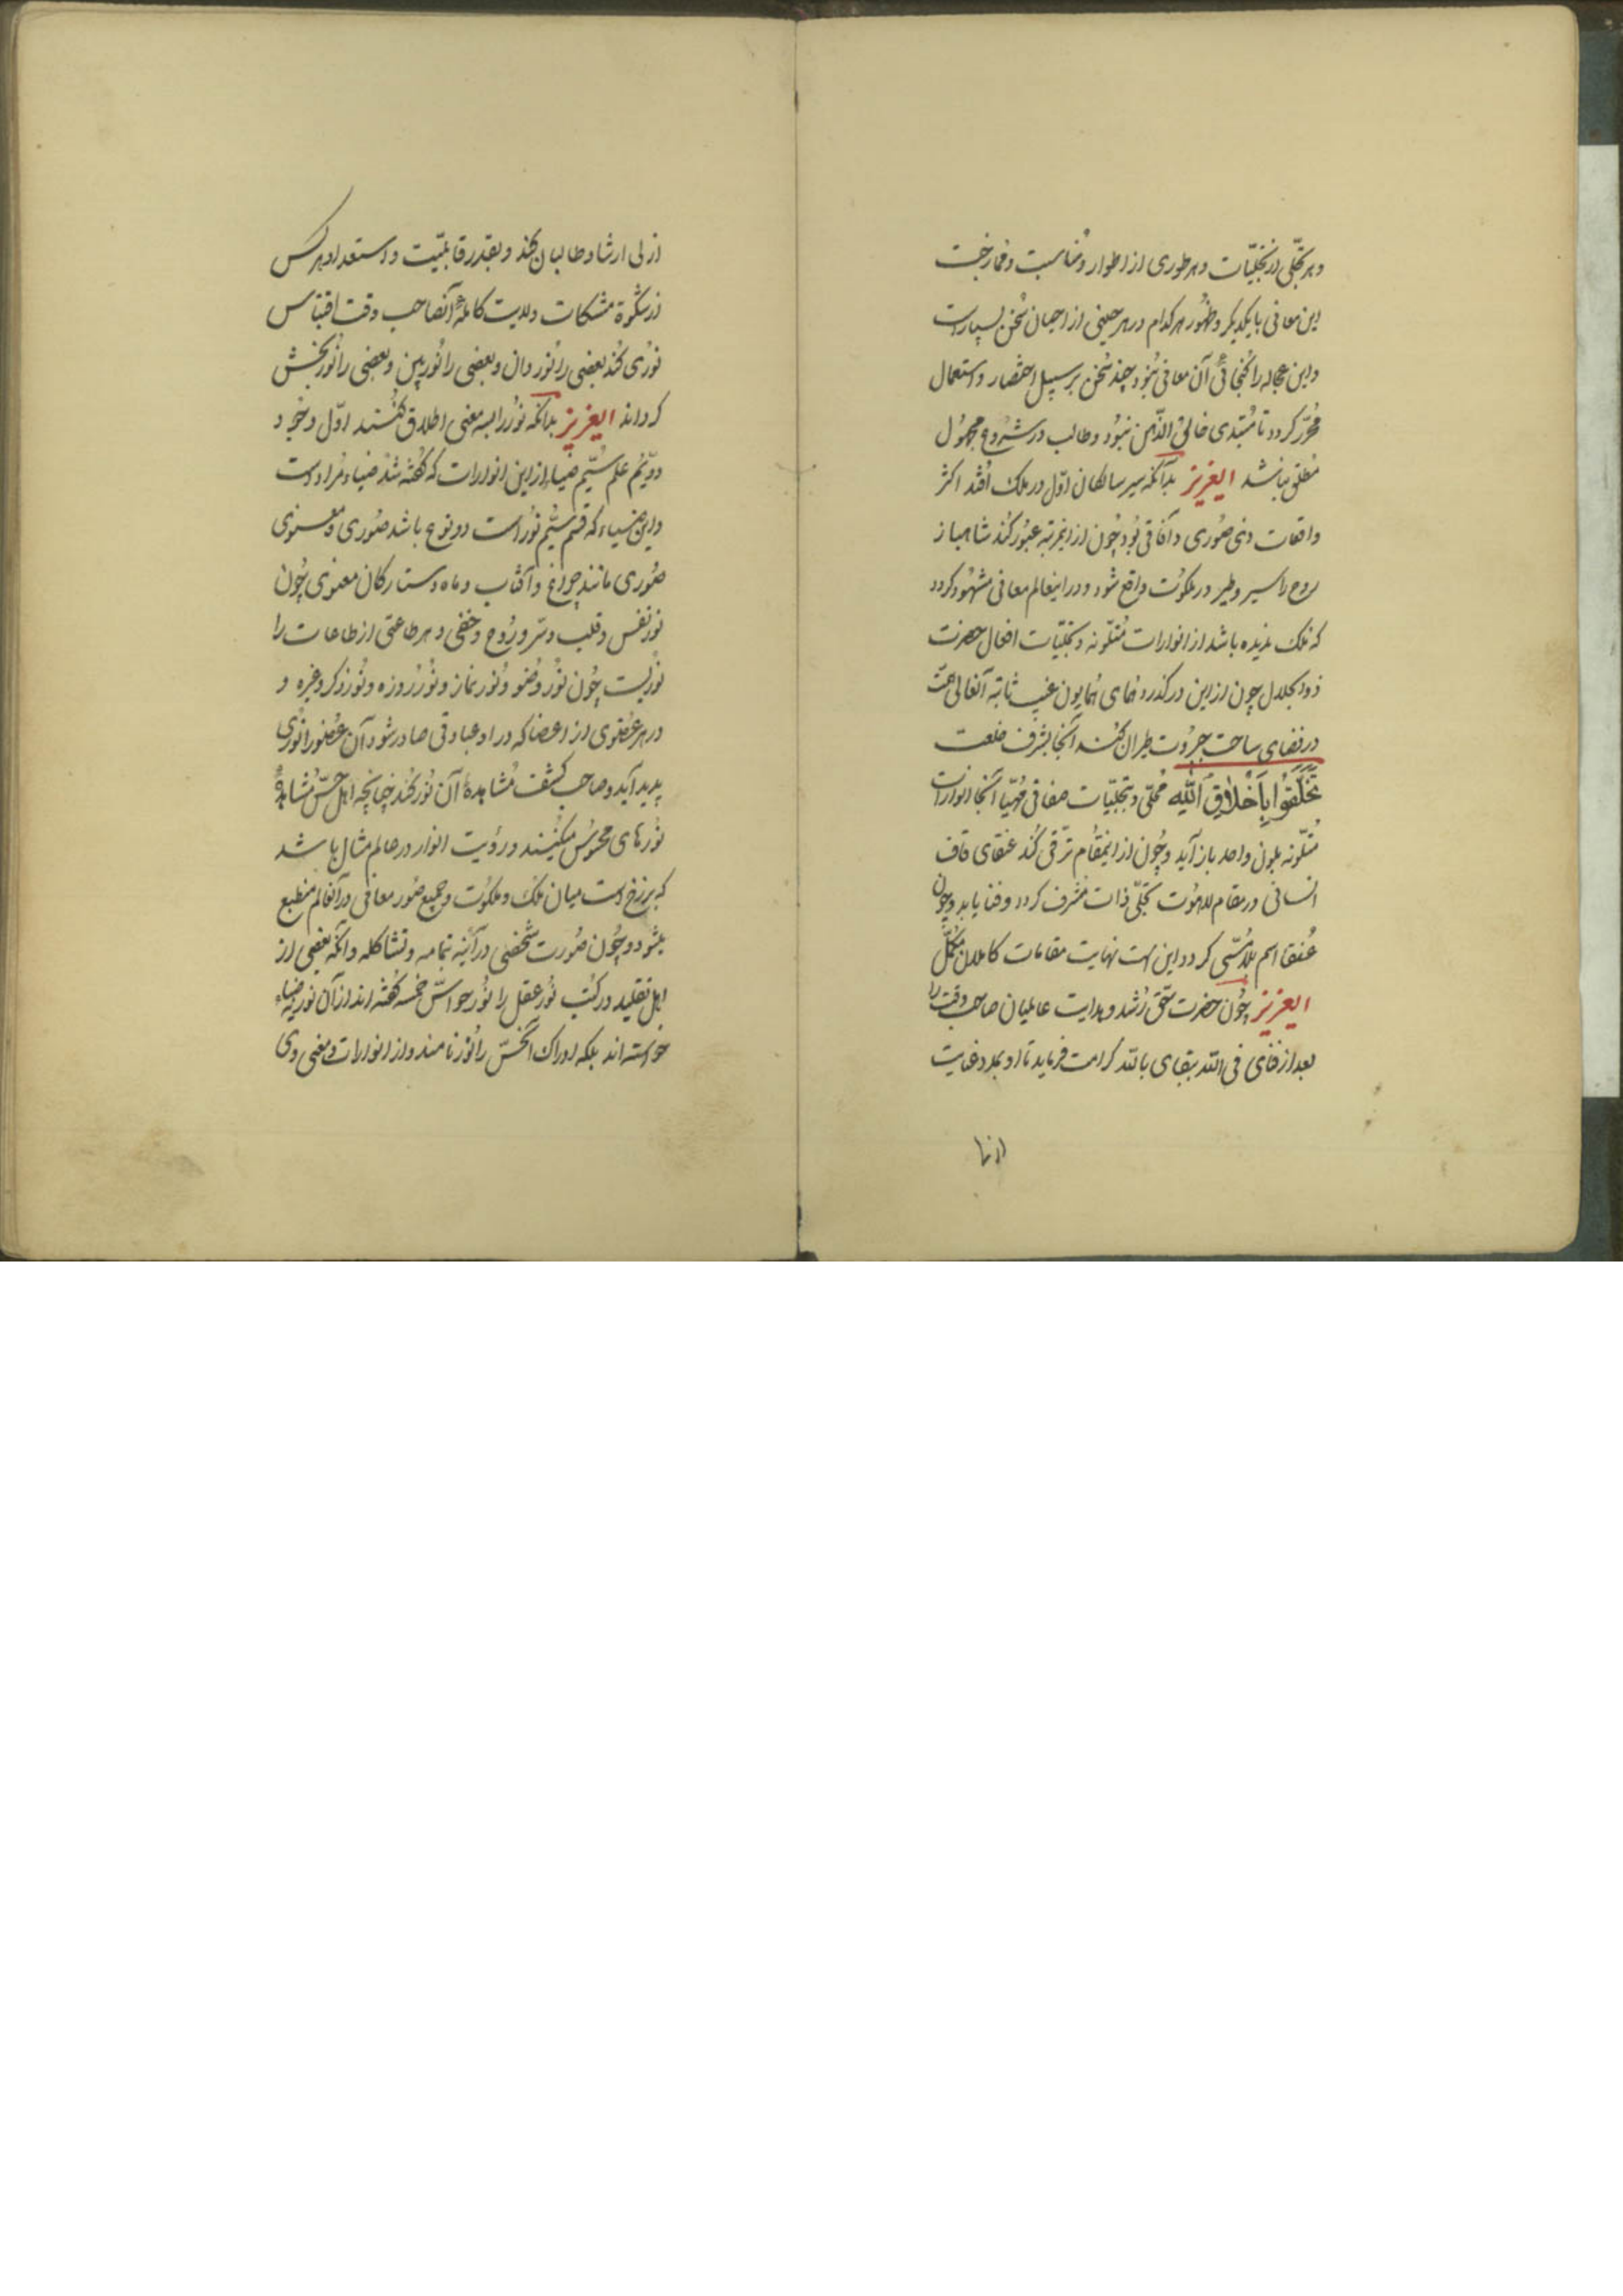 و هر تجلّی از تجلیّات و هر طوری از اطوار و مناسبت و ممازجت
این معانی با یکدیگر و ظهُور هر کدام در هر حینی از احیان سُخن بسیار است
و این عجاله را گنجائی آن معانی نبُود چند سُخن بر سبیل اختصار و استعمال
مُحرّر کردد تا مُبتدی خالیُ الذّهن نبُود و طالب در شرُوع مجهُول
مُطلق نباشد ایعزیز بدآنکه سیر سالکان اوّل در ملک اُفتد اکثر
واقعات وی صُوری و آفاقی بُود چُون از اینمرتبه عبُور کُند شاهباز
روح را سیر و طیر در ملکوُت واقع شود و در اینعالم معانی مشهُود کردد
که ملک ندیده باشد از انوارات مُتلّونه و تجلیّات افعال حضرت
ذو الجلال چون از این در کذرد همای همایون عین ثابته آنعالی همّت
در فضای ساحت جبروُت طیران کُند آنجا بشرف خلعت
تَخَلَّقُوا بِاَخْلاقِ اللّهِ مُحلّی و تجلیّات صفاتی مُهیّا آنجا انوارات
مُتلّونه بلون واحد باز آید و چُون از اینمقُام ترّقی کُند عنقای قاف
انسانی در مقام لاهُوت بتجلّی ذات مشّرف کردد و فنا یابد و چون
عُنقا اسم بلا مُسّمی کردد این است نهایت مقامات کاملان مُکمّل
ایعزیز چُون حضرت حّق رُشد و هدایت عالمیان صاحب وقت را
بعد از فنای فی اللّه بقای باللّه کرامت فرماید تا او بمدد عنایت
ازلی ارشاد طالبان کند و بقدر قابلیّت و استعداد هر کس
از مشکوة مشکات ولایت کاملهٔ آنصاحب وقت اقتباس
نوُری کُند بعضی را نوُر دان و بعضی را نوُر بین و بعضی را نوُر بخش
کرداند ایعزیز بدانکه نوُر را بسه معنی اطلاق کُنند اوّل وجُود
دوّیُم علم سُیّم ضیاء از این انوارات که کُفته شد ضیاء مُراد است
و این ضیاء که قسم سُیّم نوُر است دو نوع باشد صُوری و معنوی
صُوری مانند چراغ و آفتاب و ماه و ستارکان معنوی چُون
نوُر نفس و قلب و سّر و روُح و خفی و هر طاعتی از طاعات را
نوُریست چُون نوُر وضُو و نوُر نماز و نوُر روزه و نوُر ذکر و غیره و
در هر عضُوی از اعضا که در او عبادتی صادر شود آن عضُو را نوُری
پدید آید و صاحب کشف مُشاهدهٔ آن نوُر کُند چنانچه اهل حسّ مُشاهدهٔ
نوُرهای محسوُس میکُنند و رؤیت انوار در عالم مثال باشد
که برزخ است میان ملک و ملکوُت و جمیع صُور معانی در آنعالم منطبع
میشود و چُون صُورت شخصی در آئینه بتمامه و تشاکله و آنکه بعضی از
اهل تقلید در کتُب نوُر عقل را نوُر حواسّ خمسه کُفته اند از آن نور ضیاء
خواسته اند بلکه ادراک آنحسّ را نوُر نامند و از انوارات و معنی وی
ازلی